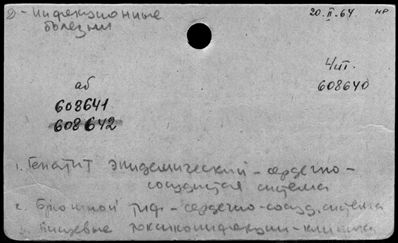 Д-Инфекционные
болезни
20.II.64.
нр
Чит.
608640
аб
608641
608642
1. Гепатит эпидемический - сердечно-
сосудистая система
2. Брюшной тиф. - сердечно-сосуд. система
3. Пищевые токсикоинфекции - клиника